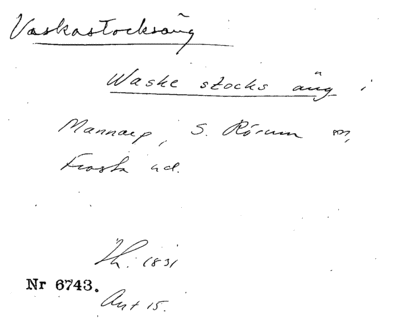 Vaskastocksäng
Waske stocks äng i
Mannarp, S. Rörum sn,
Frosta hd.
Ih. 1831
Nr 6743.
Akt 15.